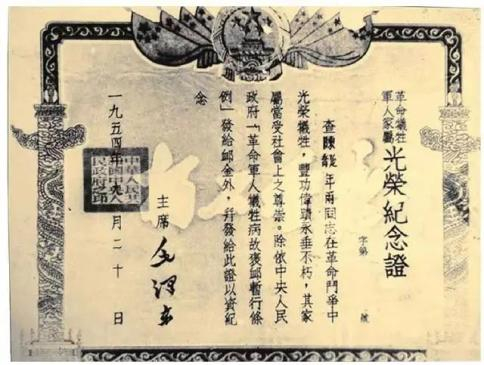 革命犧牲
軍人家屬
光榮紀念證
字第 號
查陳 年兩同志在革命鬥爭中
光榮犧牲,豐功偉蹟永垂不朽,其家
屬當受社會上之尊崇。除依中央人民
政府「革命軍人犧牲病故褒卹暫行條
例」發給卹金外,幷發給此證以資紀
念
主席 毛澤東
一九五四年 月二十日
中華人民共
和國中央人
民政府印